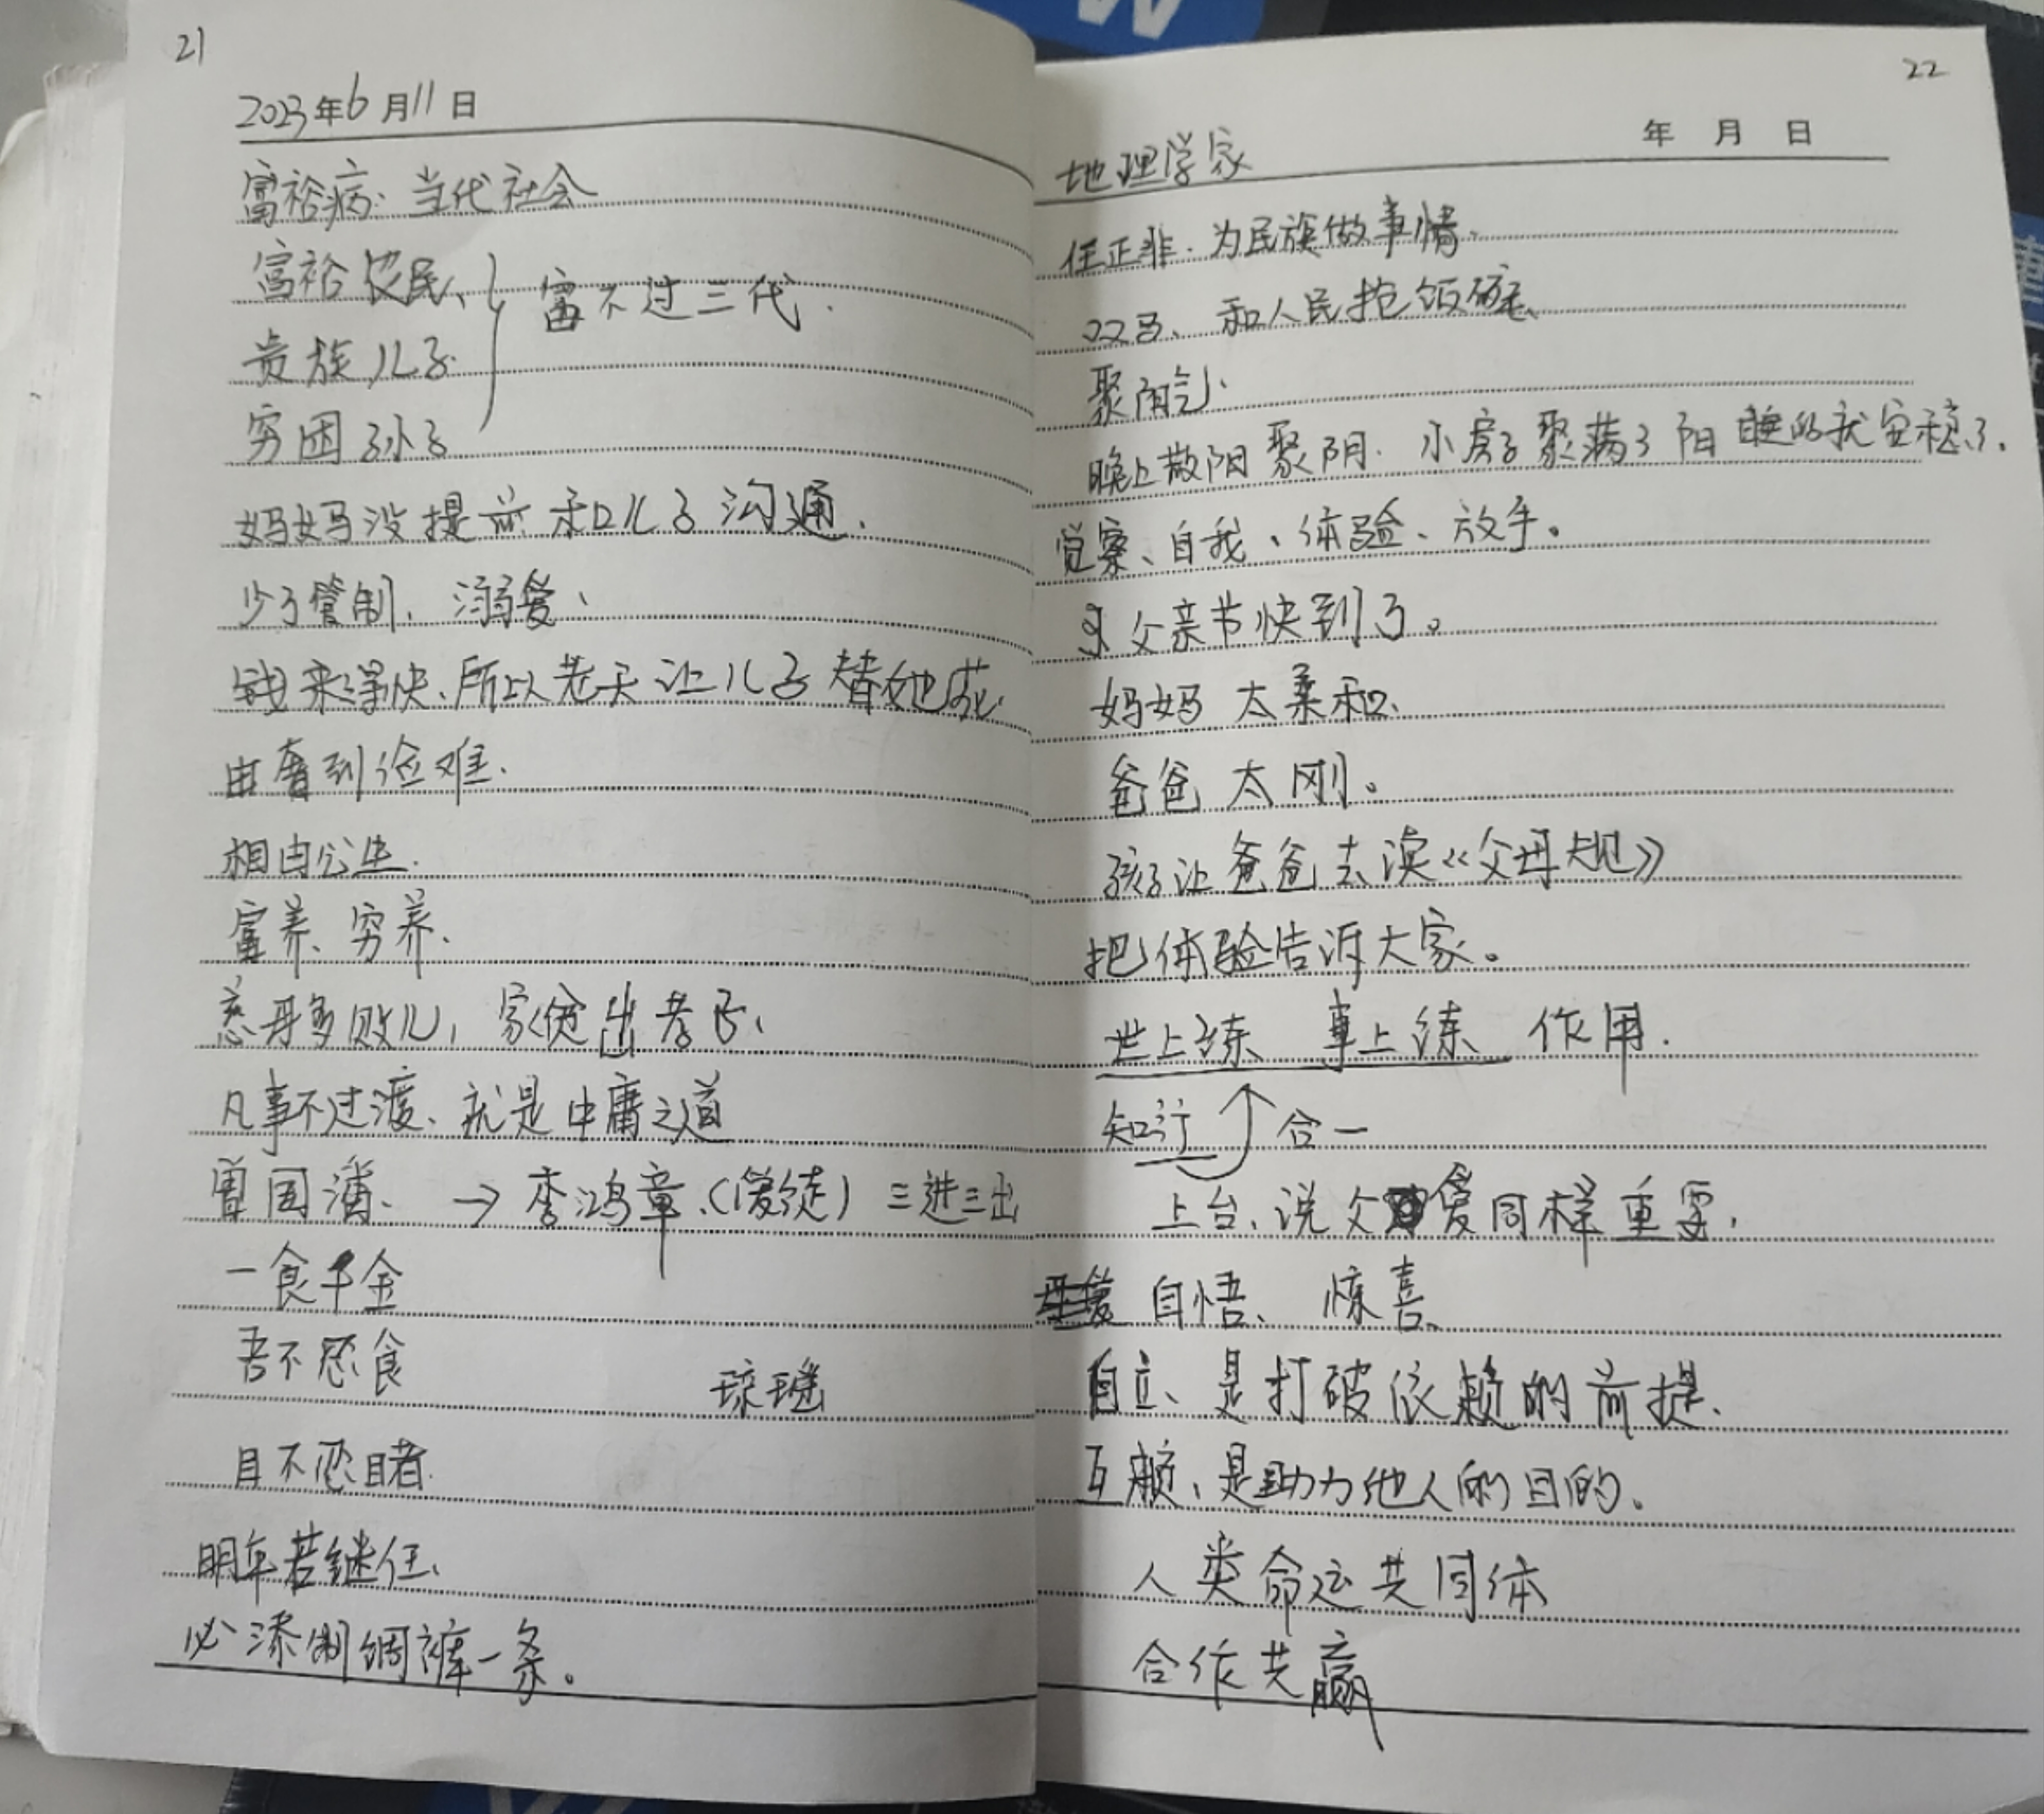 21
2023年6月11日
富裕病.当代社会
富裕农民、
贵族儿子.
富不过三代.
穷困孙子
妈妈没提前和儿子沟通.
少了管制,溺爱、
钱来得快、所以老天让儿子替她死.
由奢到俭难.
相由心生.
富养、穷养.
慈母多败儿,家贫出孝子、
凡事不过渡、就是中庸之道
曾国藩、→李鸿章、(爱徒)三进三出
一食千金
吾不忍食
琼瑶
目不忍睹.
明年若继任、
必添制绸裤一条。
22
年 月 日
地理学家
任正非.为民族做事情.
双马、和人民抢饭碗、
聚阳气.
晚上散阳聚阴.小房子聚满了阳睡的就安稳了.
觉察、自我、体验、放手。
父亲节快到了。
妈妈太柔和、
爸爸太刚。
孩子让爸爸去读《父母规》
把体验告诉大家。
世上练 事上练 作用.
知行 合一
上台、说父爱同样重要.
自悟、惊喜、
自立、是打破依赖的前提、
互赖、是助力他人的目的、
人类命运共同体
合作共赢